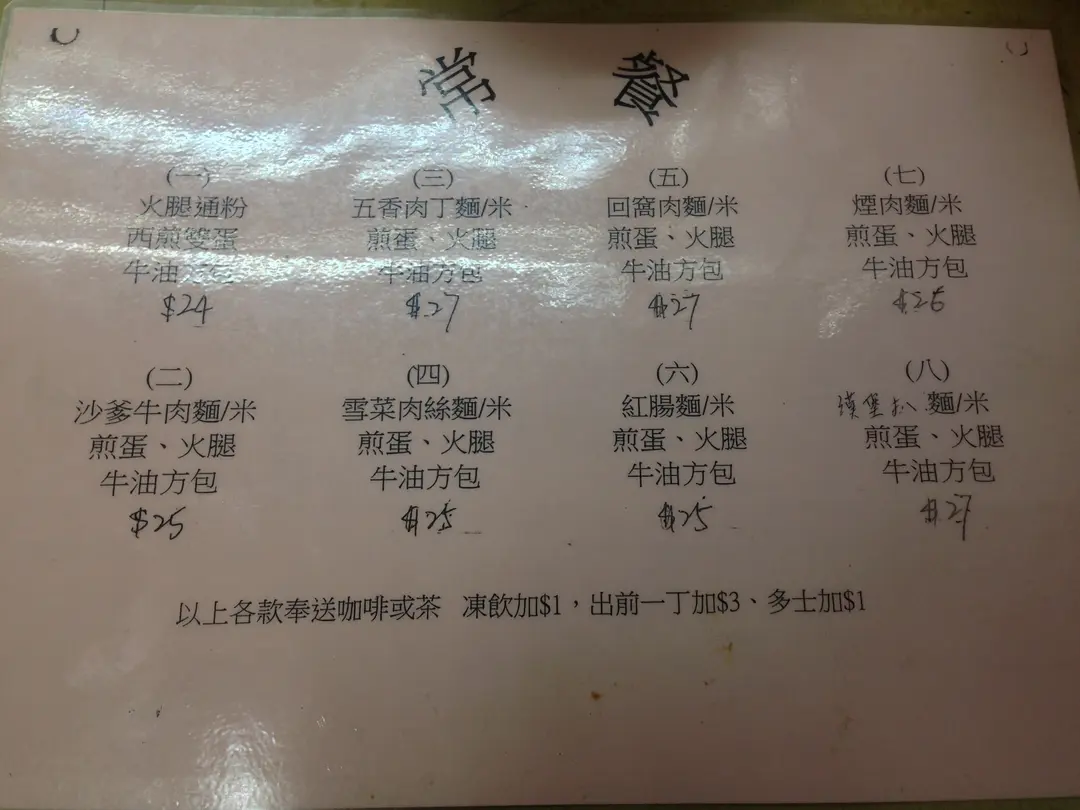 常 餐
(一)
火腿通粉
西煎雙蛋
牛油方包
$24
(三)
五香肉丁麵/米
煎蛋、火腿
牛油方包
$27
(五)
回窩肉麵/米
煎蛋、火腿
牛油方包
$27
(七)
煙肉麵/米
煎蛋、火腿
牛油方包
$26
(二)
沙爹牛肉麵/米
煎蛋、火腿
牛油方包
$25
(四)
雪菜肉絲麵/米
煎蛋、火腿
牛油方包
$25
(六)
紅腸麵/米
煎蛋、火腿
牛油方包
$25
(八)
漢堡扒麵/米
煎蛋、火腿
牛油方包
$27
以上各款奉送咖啡或茶 凍飲加$1，出前一丁加$3、多士加$1